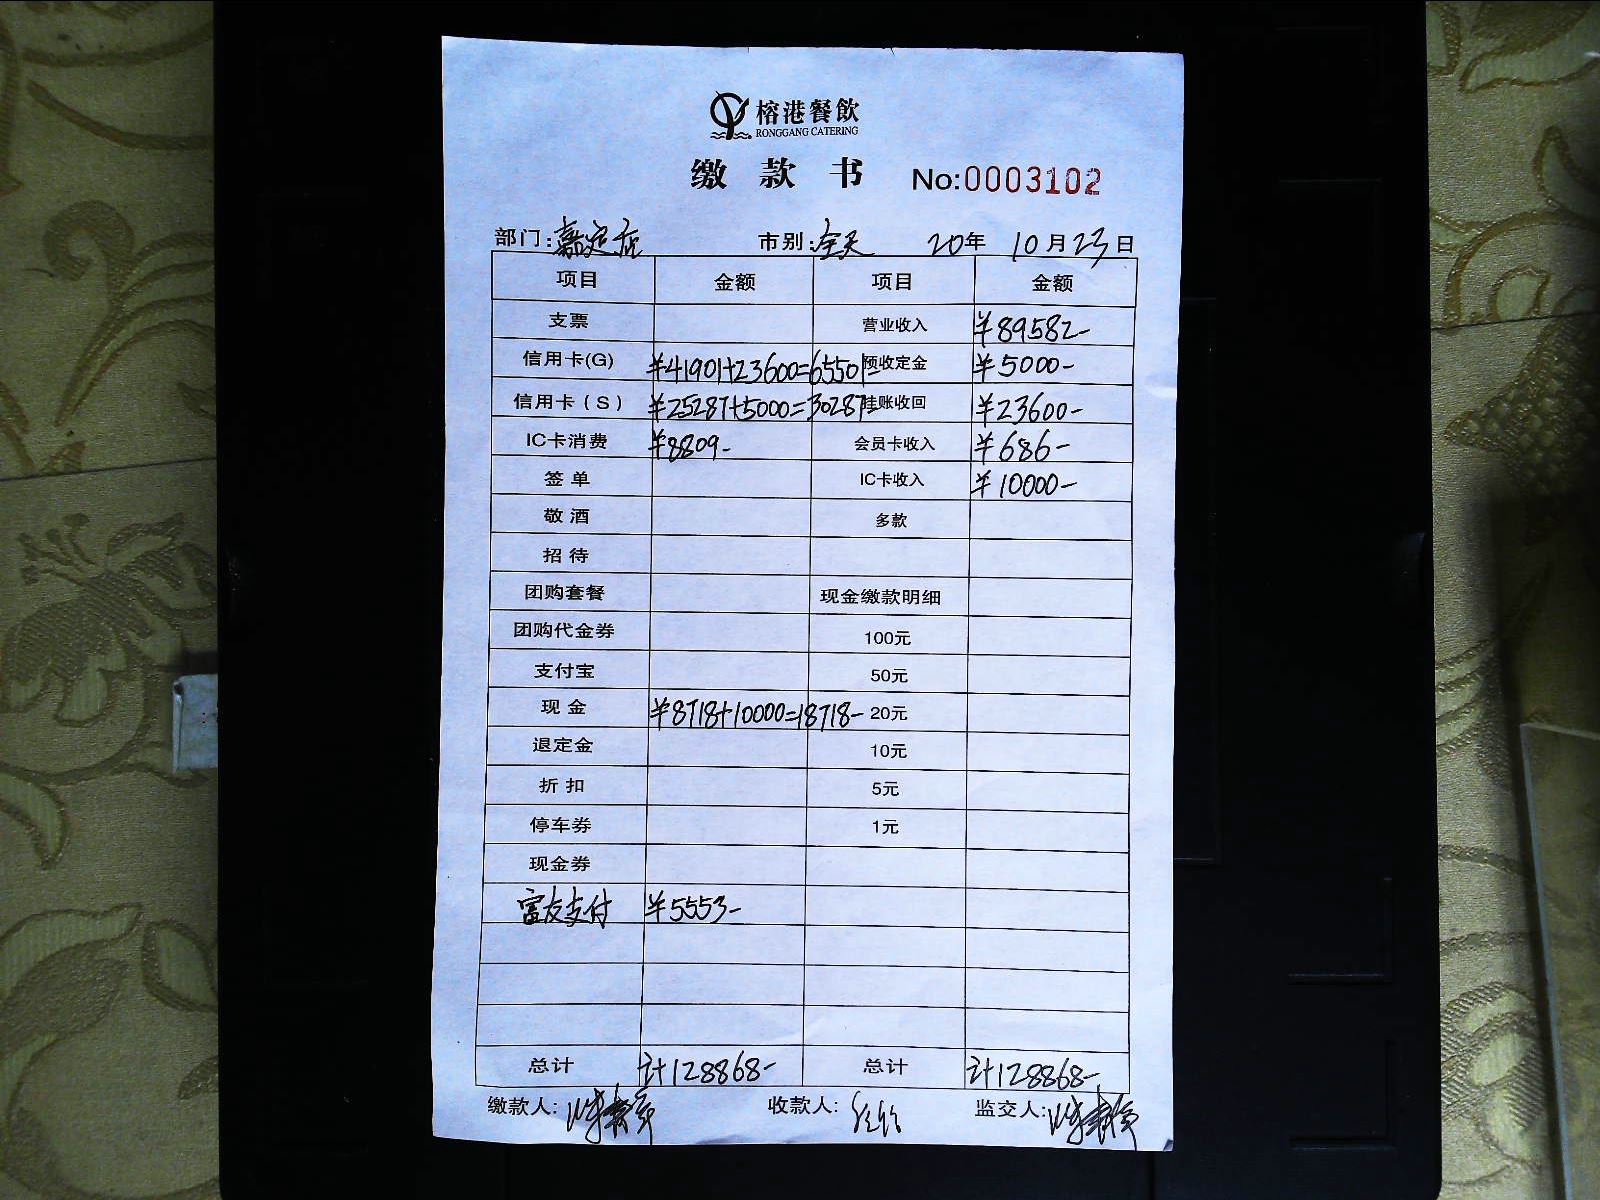 榕港餐飲
RONGGANG CATERING
缴 款 书 No:0003102
部门:嘉定店 市别:全天 20年 10月23日
项目 金额 项目 金额
支票 营业收入 ¥89582-
信用卡(G) ¥41901+23600=65501- 预收定金 ¥5000-
信用卡(S) ¥25287+5000=30287- 挂账收回 ¥23600-
IC卡消费 ¥8809- 会员卡收入 ¥686-
签单 IC卡收入 ¥10000-
敬酒 多款
招待
团购套餐 现金缴款明细
团购代金券 100元
支付宝 50元
现金 ¥8718+10000=18718- 20元
退定金 10元
折扣 5元
停车券 1元
现金券
富友支付 ¥5553-
总计 计128868- 总计 计128868-
缴款人: 收款人: 监交人: